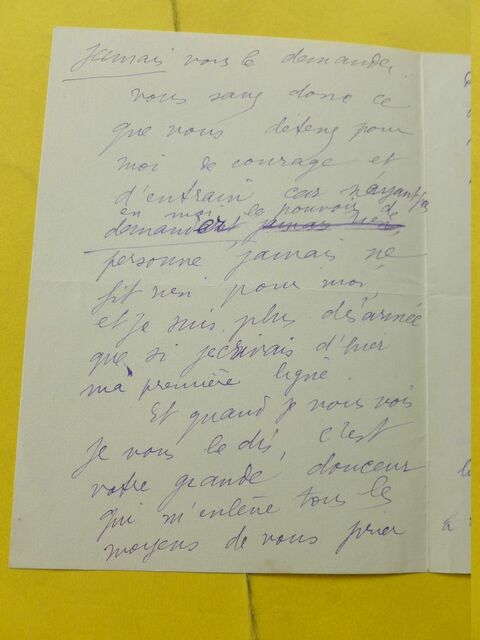 jamais vous le demander.
Vous savez donc ce
que vous détenez pour
moi de courage et
d'entrain car n'ayant pas
en moi le pouvoir de
demander jamais rien
personne, jamais ne
fit rien pour moi,
et je suis plus désarmée
que si j'écrivais d'hier
ma première ligne.
Et quand je vous vois
je vous le dis, c'est
votre grande douceur
qui m'enlève tous les
moyens de vous prier
à